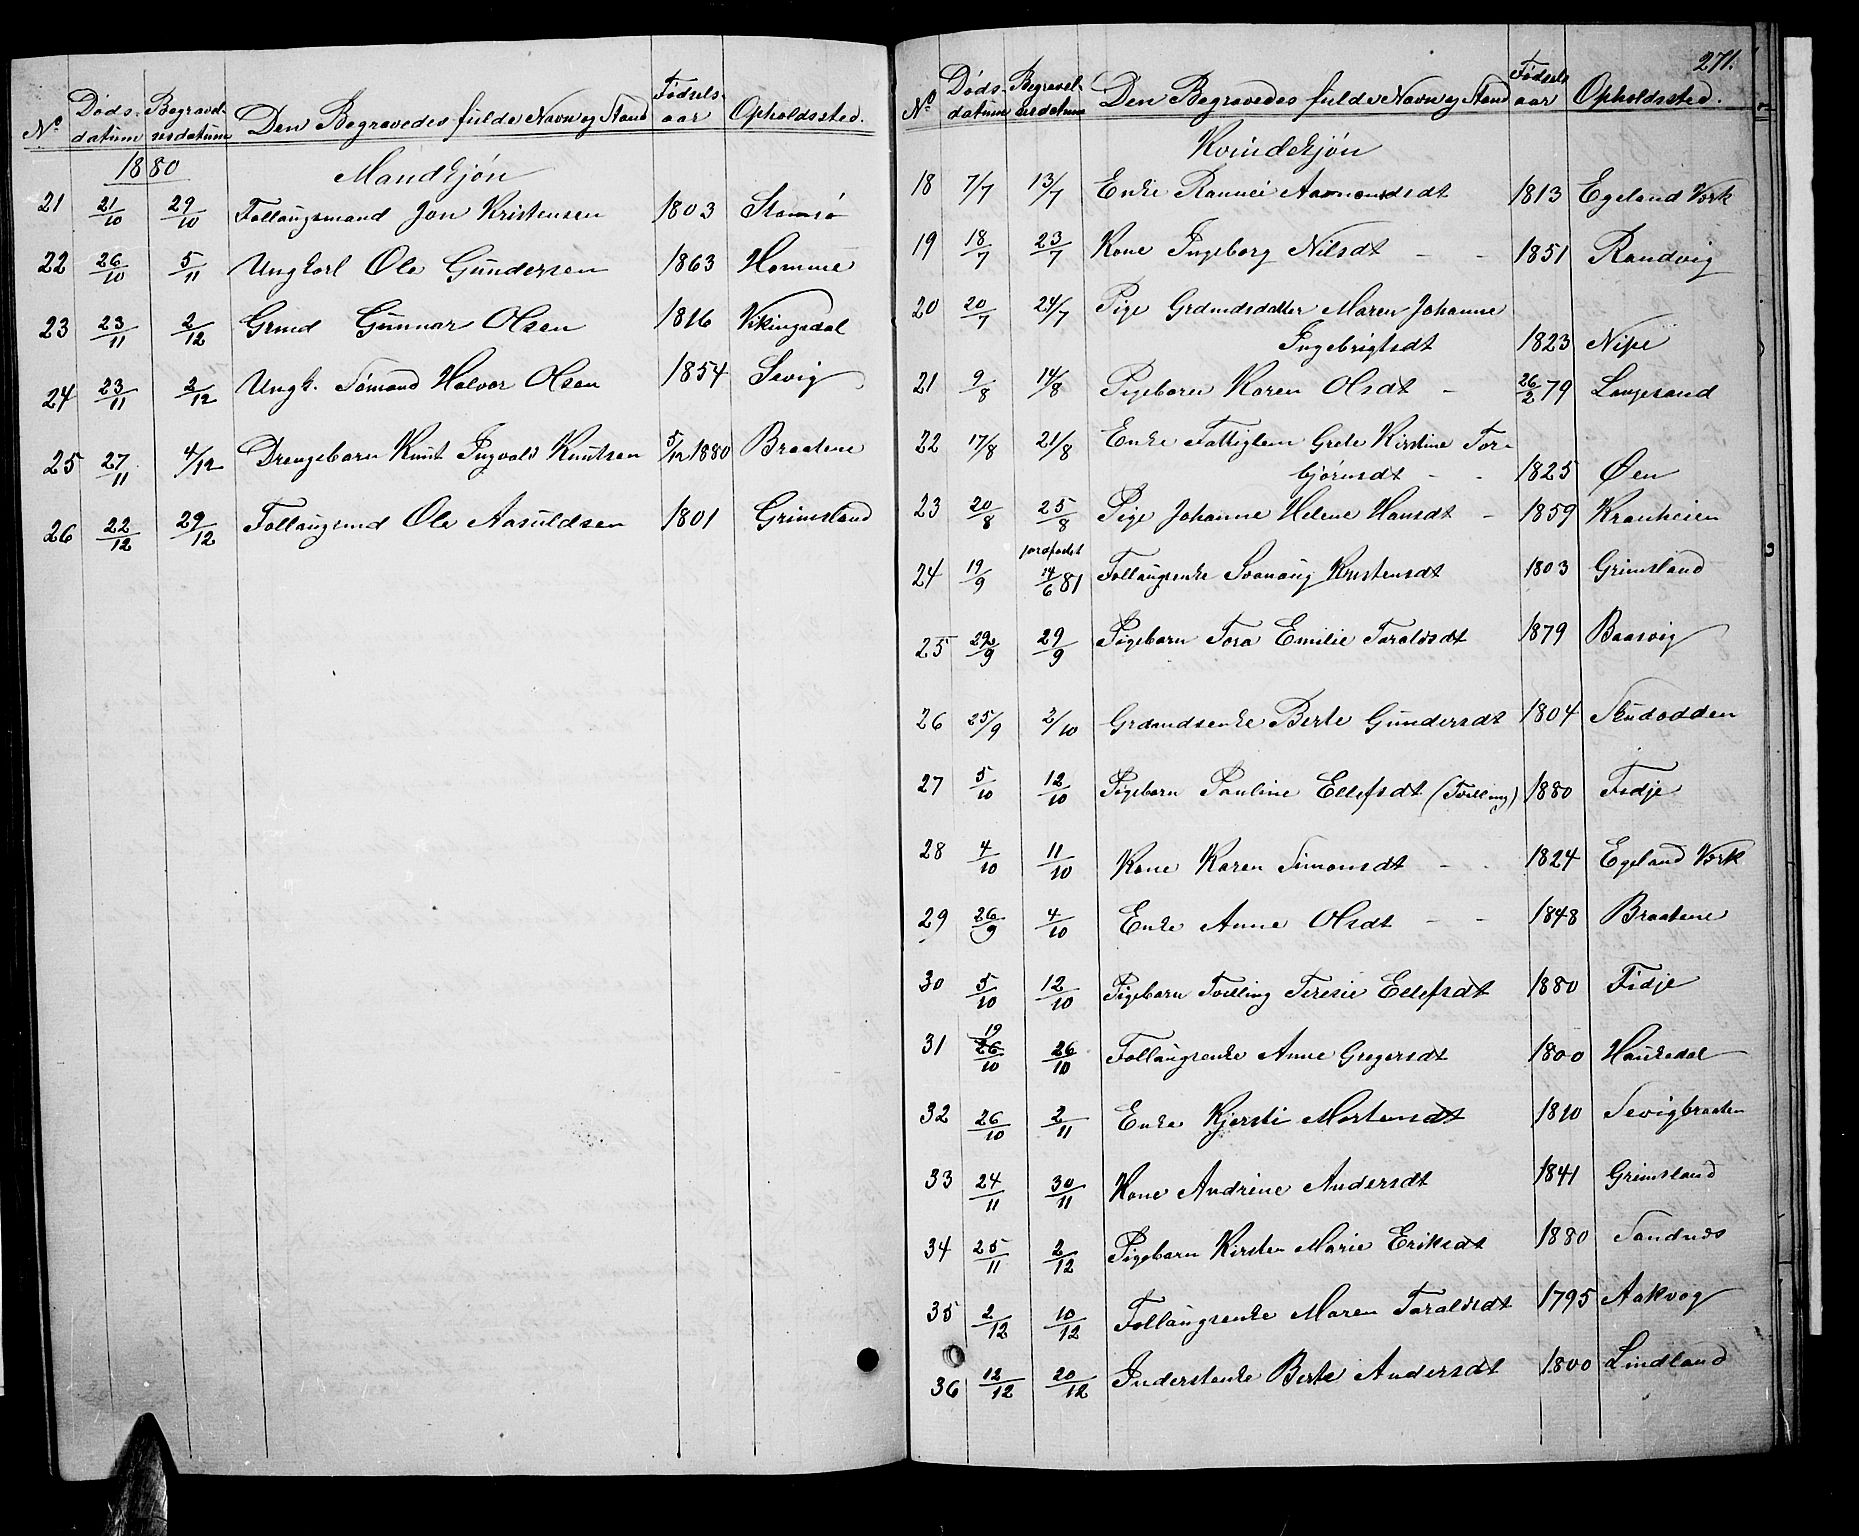 No. Døds- datum Begravel- sesdatum Den Begravedes fulde Navn og Stand Fødsels- aar Opholdssted.
1880 Mandkjøn
21 21/10 29/10 Follaugsmand Jon Kristensen 1803 Stamsø
22 26/10 5/11 Ungkarl Ole Gundersen 1863 Homme
23 23/11 2/12 Grmd Gunnar Olsen 1816 Vikingsdal
24 23/11 2/12 Ungk. Sømand Halvor Olsen 1854 Sevig
25 27/11 4/12 Drengebarn Knut Ingvald Knutsen 5/12 1880 Braatene
26 22/12 29/12 Follaugsmd Ole Aasuldsen 1801 Grimsland
271.
No. Døds- datum Begravel- sesdatum Den Begravedes fulde Navn og Stand Fødsels aar Opholdssted.
Kvindekjøn
18 7/7 13/7 Enke Rannei Aamundsdt 1813 Egeland Verk
19 18/7 23/7 Kone Ingeborg Nilsdt - - 1851 Randvig
20 20/7 24/7 Pige Grdmdsdatter Maren Johanne
Ingebrigtsdt 1823 Nipe
21 9/8 14/8 Pigebarn Karen Olsdt - 26/2 79 Langesand
22 17/8 21/8 Enke Fattiglem Grete Kirstine Tor-
bjørnsdt - - 1825 Øen
23 20/8 25/8 Pige Johanne Helene Hansdt - 1859 Kranheien
jordfæstet
24 19/9 14/6 81 Follaugsenke Svanaug Kristensdt 1803 Grimsland
25 22/9 29/9 Pigebarn Tora Emilie Taraldsdt 1879 Baasvig
26 25/9 2/10 Grdmandsenke Berte Gundersdt 1804 Studodden
27 5/10 12/10 Pigebarn Pauline Ellefsdt (Tvilling) 1880 Fidje
28 4/10 11/10 Kone Karen Simonsdt - - 1824 Egeland Verk
29 26/9 4/10 Enke Anne Olsdt - - 1848 Braatene
30 5/10 12/10 Pigebarn Tvilling Teresie Ellefsdt 1880 Fidje
19
31 26/10 26/10 Follaugsenke Anne Gregersdt 1800 Haukedal
32 26/10 2/11 Enke Kjersti Mortensdt 1810 Sevigbraaten
33 24/11 30/11 Kone Andrine Andersdt 1841 Grimsland
34 25/11 2/12 Pigebarn Kirsten Marie Eriksdt 1880 Sandnæs
35 2/12 10/12 Follaugsenke Maren Taraldsdt 1795 Aakvag
36 12/12 20/12 Inderstenke Berte Andersdt 1800 Lindland